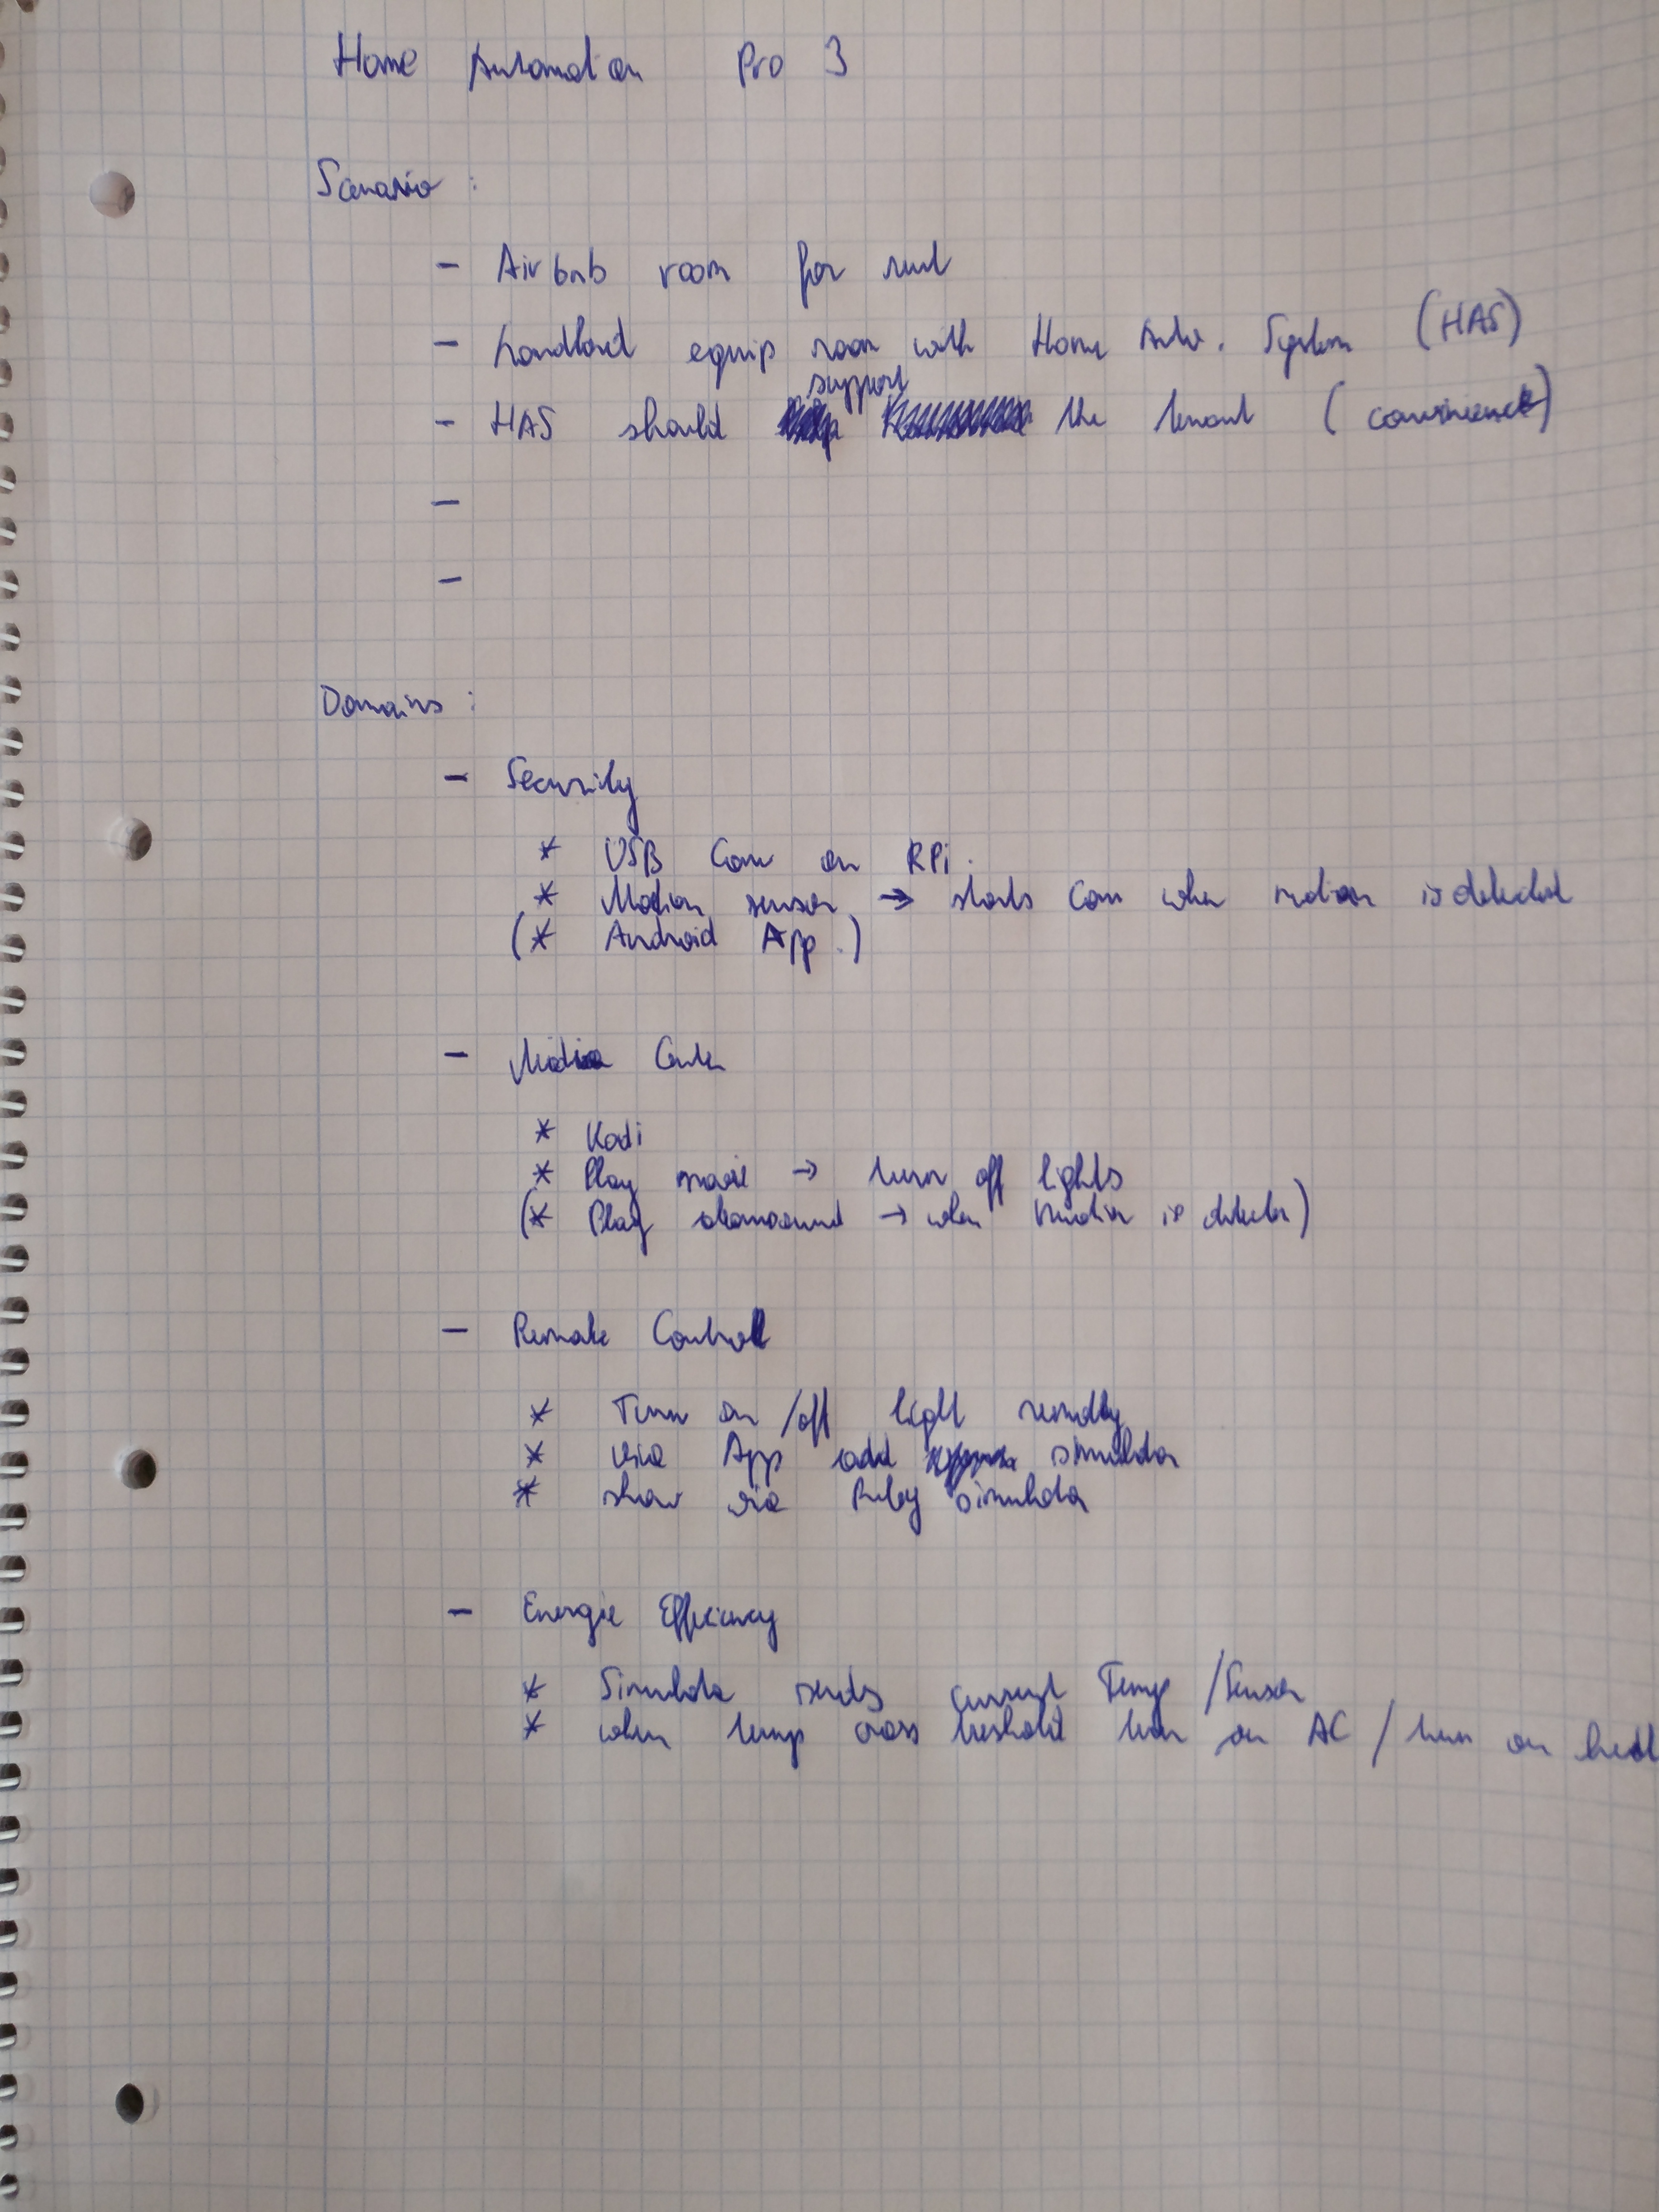 Home Automation Pro 3
Scenario :
- Airbnb room for rent
- Landlord equip room with Home Auto. System (HAS)
support
- HAS should the tenant (convenience)
-
-
Domains :
- Security
* USB Cam on RPi.
* Motion sensor → starts Cam when motion is detected
(* Android App.)
- Media Center
* Kodi
* Play movie → turn off lights
(* Play alarmsound → when motion is detected)
- Remote Controll
* Turn on/off light remotely
* via App add simulator
* show via Ruby simulator
- Energie Efficiency
* Simulator sends current Temp/Sensor
* when temp cross treshold turn on AC / turn on heat